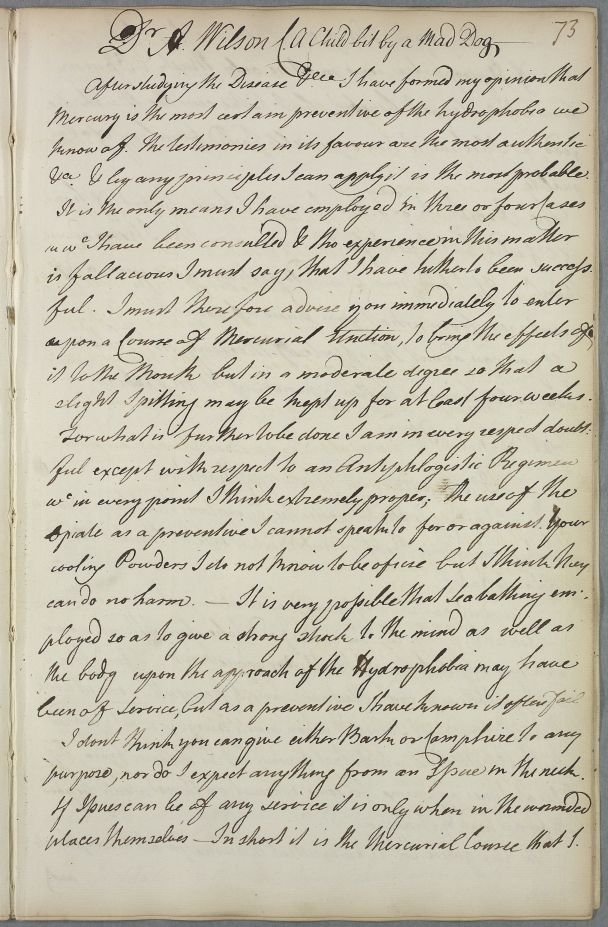 Dr A. Wilson (A Child bit by a Mad Dog 73
After studying the Disease &ca I have formed my opinion that
Mercury is the most certain preventive of the hydrophobia we
know of. The testimonies in its favour are the most authentic
&ca & by any principles I can apply it is the most probable.
It is the only means I have employed in three or four Cases
in wc I have been consulted & tho experience in this matter
is fallacious I must say, that I have hitherto been success
ful. I must therefore advise you immediately to enter
upon a Course of Mercurial Unction, to bring the effects of
it to the Mouth but in a moderate degree so that a
slight Spitting may be kept up for at least four weeks.
For what is further to be done I am in every respect doubt
ful except with respect to an Antiphlogistic Regimen
wc in every point I think extremely proper; The use of the
Opiate as a preventive I cannot speak to for or against. Your
cooling Powders I do not know to be of use but I think they
can do no harm. — It is very possible that Sea bathing em-
ployed so as to give a strong shock to the mind as well as
the body upon the approach of the Hydrophobia may have
been of Service, but as a preventive I have known it often fail
I dont think you can give either Bark or Camphire to any
purpose, nor do I expect anything from an Issue in the neck.
If Issues can be of any service it is only when in the wounded
places themselves — In short it is the Mercurial Course that I.